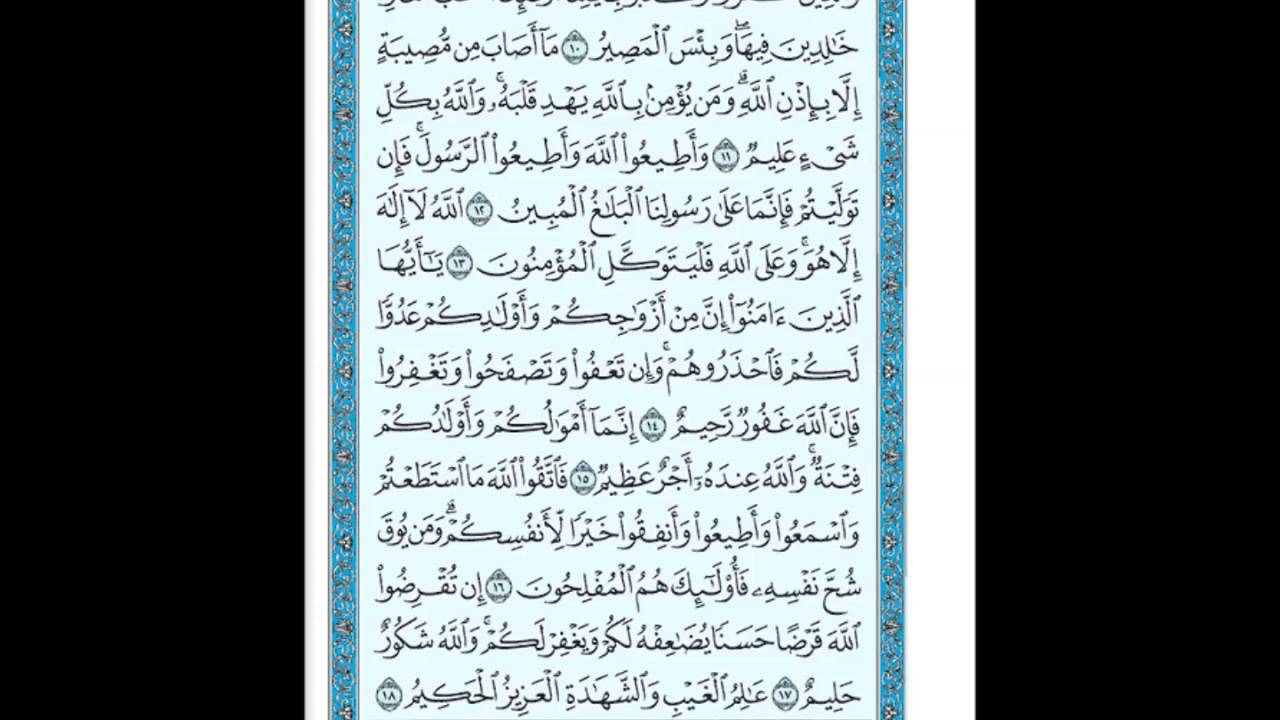 خَٰلِدِينَ فِيهَاۖ وَبِئْسَ ٱلْمَصِيرُ ١٠ مَآ أَصَابَ مِن مُّصِيبَةٍ
إِلَّا بِإِذْنِ ٱللَّهِۗ وَمَن يُؤْمِنۢ بِٱللَّهِ يَهْدِ قَلْبَهُۥۚ وَٱللَّهُ بِكُلِّ
شَىْءٍ عَلِيمٌ ١١ وَأَطِيعُوا۟ ٱللَّهَ وَأَطِيعُوا۟ ٱلرَّسُولَۚ فَإِن
تَوَلَّيْتُمْ فَإِنَّمَا عَلَىٰ رَسُولِنَا ٱلْبَلَٰغُ ٱلْمُبِينُ ١٢ ٱللَّهُ لَآ إِلَٰهَ
إِلَّا هُوَۚ وَعَلَى ٱللَّهِ فَلْيَتَوَكَّلِ ٱلْمُؤْمِنُونَ ١٣ يَٰٓأَيُّهَا
ٱلَّذِينَ ءَامَنُوٓا۟ إِنَّ مِنْ أَزْوَٰجِكُمْ وَأَوْلَٰدِكُمْ عَدُوًّا
لَّكُمْ فَٱحْذَرُوهُمْۚ وَإِن تَعْفُوا۟ وَتَصْفَحُوا۟ وَتَغْفِرُوا۟
فَإِنَّ ٱللَّهَ غَفُورٌ رَّحِيمٌ ١٤ إِنَّمَآ أَمْوَٰلُكُمْ وَأَوْلَٰدُكُمْ
فِتْنَةٌۚ وَٱللَّهُ عِندَهُۥٓ أَجْرٌ عَظِيمٌ ١٥ فَٱتَّقُوا۟ ٱللَّهَ مَا ٱسْتَطَعْتُمْ
وَٱسْمَعُوا۟ وَأَطِيعُوا۟ وَأَنفِقُوا۟ خَيْرًا لِّأَنفُسِكُمْۗ وَمَن يُوقَ
شُحَّ نَفْسِهِۦ فَأُو۟لَٰٓئِكَ هُمُ ٱلْمُفْلِحُونَ ١٦ إِن تُقْرِضُوا۟
ٱللَّهَ قَرْضًا حَسَنًا يُضَٰعِفْهُ لَكُمْ وَيَغْفِرْ لَكُمْۚ وَٱللَّهُ شَكُورٌ
حَلِيمٌ ١٧ عَٰلِمُ ٱلْغَيْبِ وَٱلشَّهَٰدَةِ ٱلْعَزِيزُ ٱلْحَكِيمُ ١٨